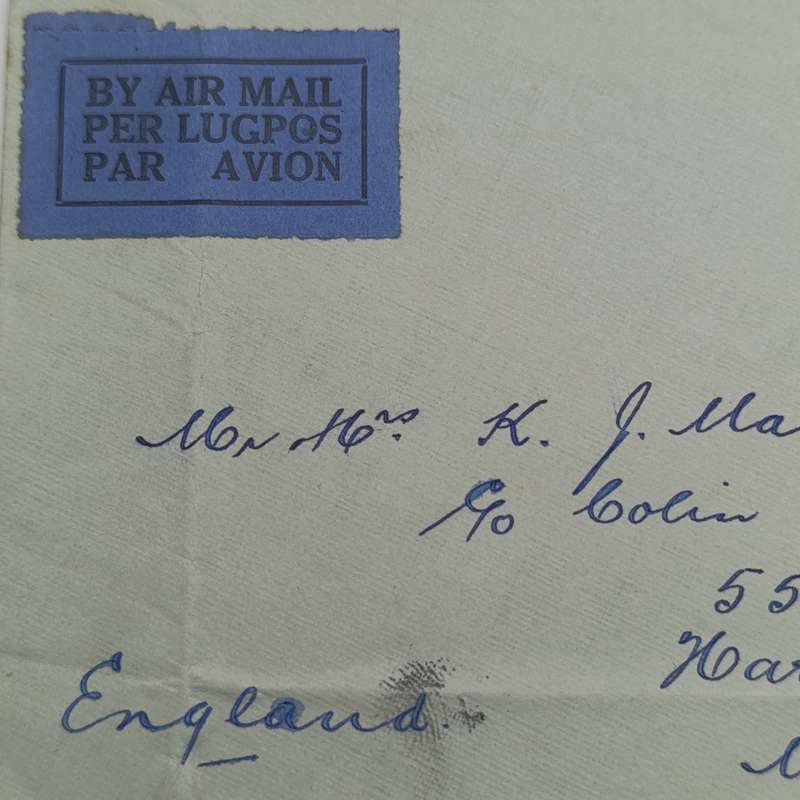 BY AIR MAIL
PER LUGPOS
PAR AVION
Mr Mrs. K. J. Ma
c/o Colin
55
Har
England.